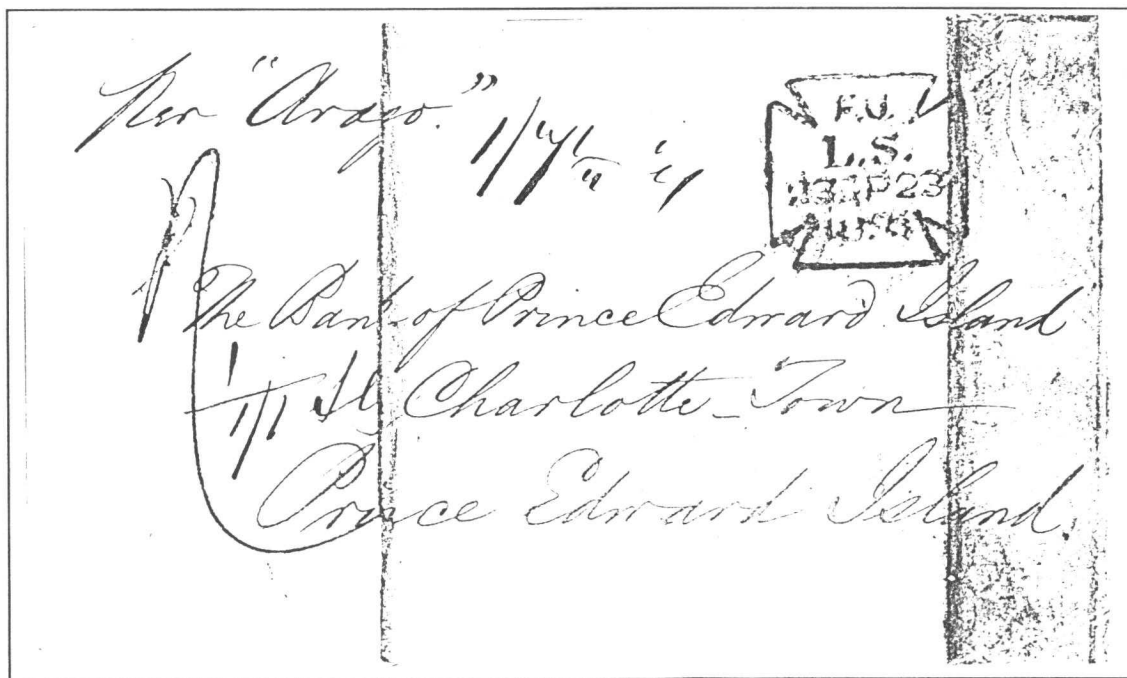 Per "Arago."
P.U.
L.S.
23 SP 23
The Bank of Prince Edward Island
1/1 Stg Charlotte-Town
Prince Edward Island.